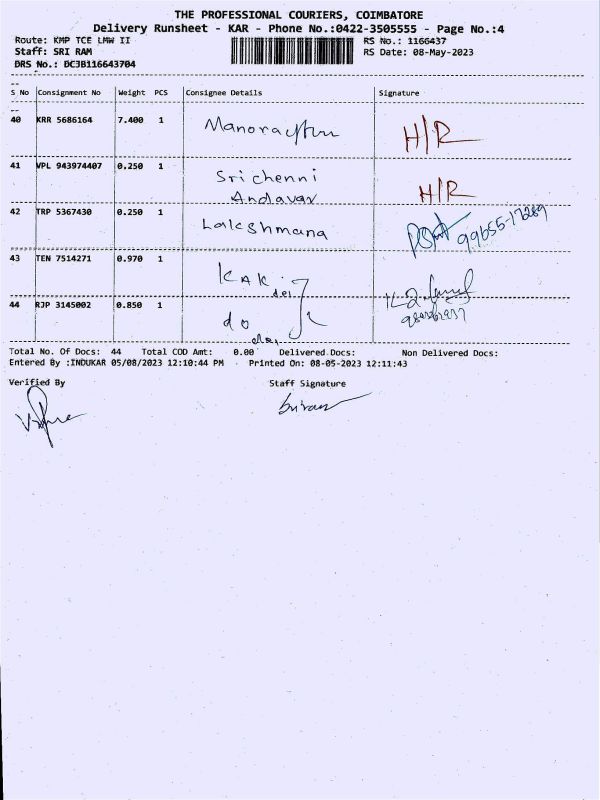 THE PROFESSIONAL COURIERS, COIMBATORE
Delivery Runsheet - KAR - Phone No.:0422-3505555 - Page No.:4
Route: KMP TCE LMW II
RS No.: 1166437
Staff: SRI RAM
RS Date: 08-May-2023
DRS No.: DCJB116643704
S No Consignment No Weight PCS Consignee Details Signature
40 KRR 5686164 7.400 1 H/R
41 VPL 943974407 0.250 1 Srichenni
Andavar H/R
42 TRP 5367430 0.250 1 Lakshmana
43 TEN 7514271 0.970 1
44 RJP 3145002 0.850 1 do
Total No. Of Docs: 44 Total COD Amt: 0.00 Delivered Docs: Non Delivered Docs:
Entered By :INDUKAR 05/08/2023 12:10:44 PM - Printed On: 08-05-2023 12:11:43
Verified By Staff Signature